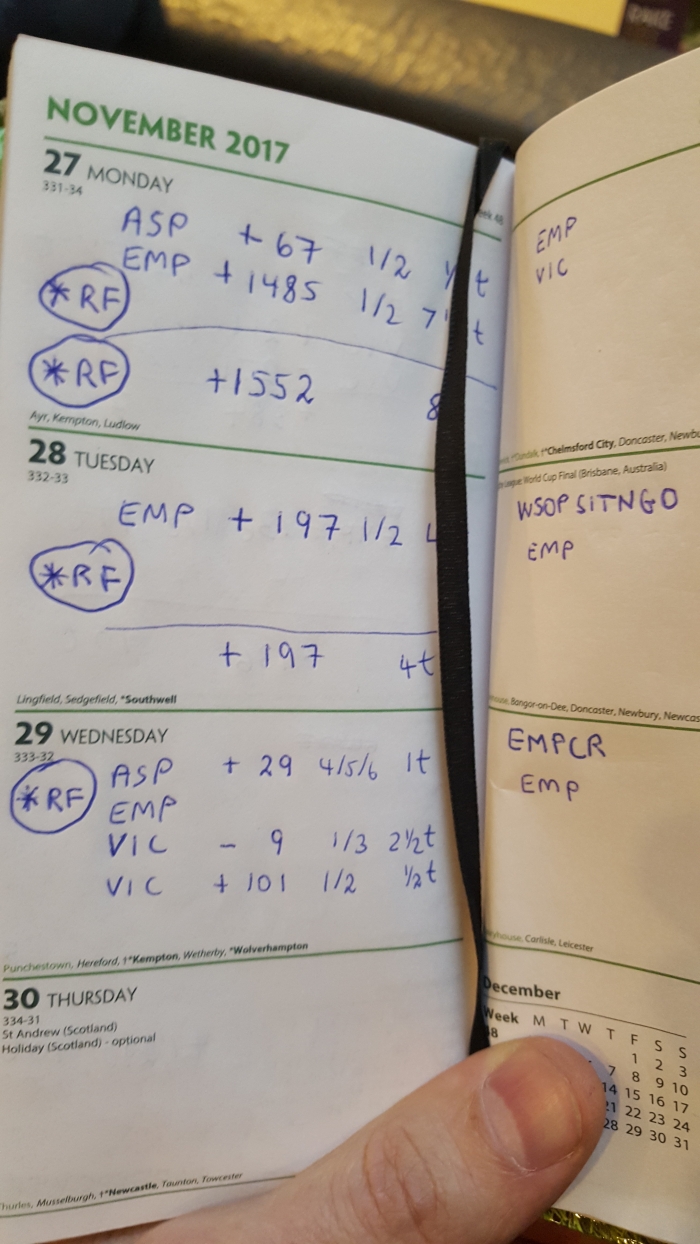 NOVEMBER 2017
27 MONDAY
331-34
ASP + 67 1/2 t
EMP + 1485 1/2 7 t
*RF
*RF +1552 8
Ayr, Kempton, Ludlow
28 TUESDAY
332-33
EMP + 197 1/2
*RF
+ 197 4t
Lingfield, Sedgefield, *Southwell
29 WEDNESDAY
333-32
*RF
ASP + 29 4/5/6 1t
EMP
VIC - 9 1/3 2½t
VIC + 101 1/2 ½t
Punchestown, Hereford, †*Kempton, Wetherby, *Wolverhampton
30 THURSDAY
334-31
St Andrew (Scotland)
Holiday (Scotland) - optional
Musselburgh, †*Newcastle, Taunton, Towcester
48
EMP
VIC
†*Chelmsford City, Doncaster,
World Cup Final (Brisbane, Australia)
WSOP SITNGO
EMP
Bangor-on-Dee, Doncaster, Newbury,
EMPCR
EMP
Carlisle, Leicester
December
Week M T W T F S S
48 1 2 3
7 8 9 10
14 15 16 17
21 22 23 24
28 29 30 31